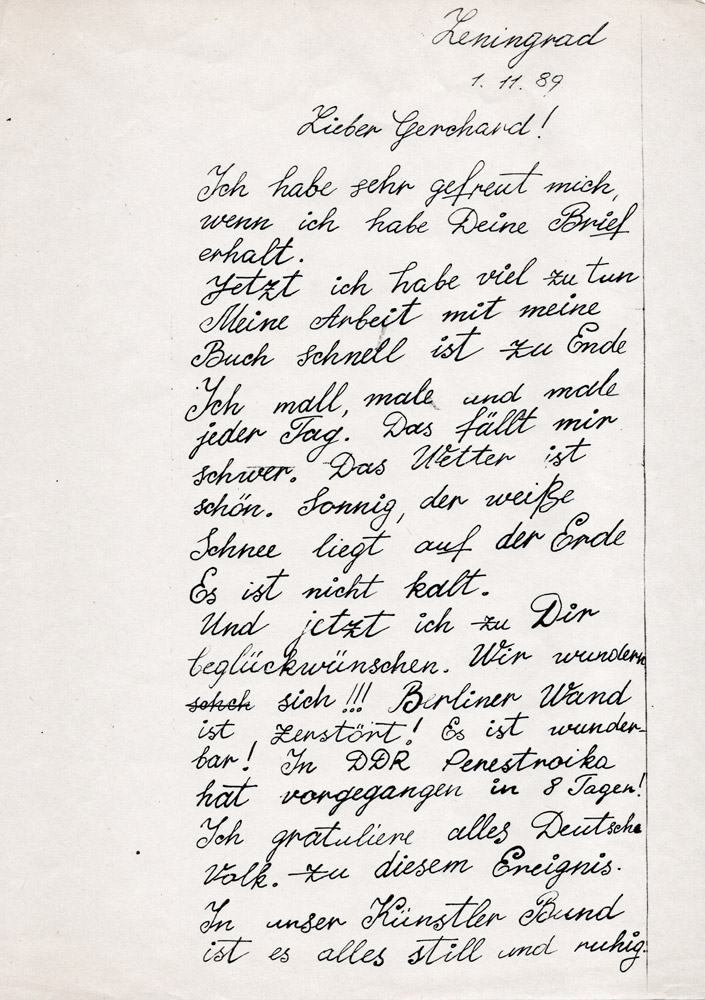 Leningrad
1. 11. 89
Lieber Gerchard!
Ich habe sehr gefreut mich,
wenn ich habe Deine Brief
erhalt.
Jetzt ich habe viel zu tun
Meine Arbeit mit meine
Buch schnell ist zu Ende
Ich mall, male und male
jeder Tag. Das fällt mir
schwer. Das Wetter ist
schön. Sonnig, der weiße
Schnee liegt auf der Erde
Es ist nicht kalt.
Und jetzt ich zu Dir
beglückwünschen. Wir wundern
sich !!! Berliner Wand
ist zerstört! Es ist wunder-
bar! In DDR Perestroika
hat vorgegangen in 8 Tagen!
Ich gratuliere alles Deutsche
Volk. zu diesem Ereignis.
In unser Künstler Bund
ist es alles still und ruhig.